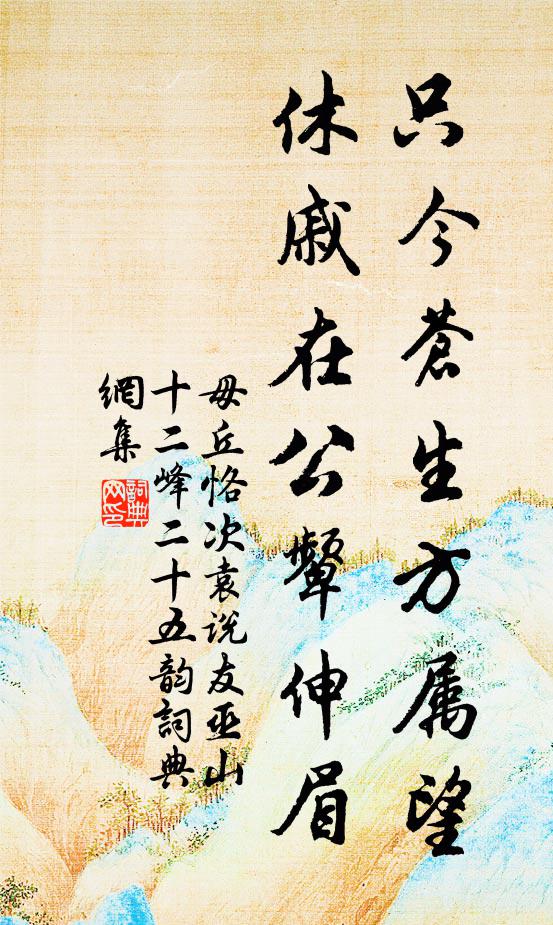 只今苍生方属望
休戚在公颦伸眉
毋丘恪次袁说友巫山
十二峰二十五韵詞典
網集
詞典
网印